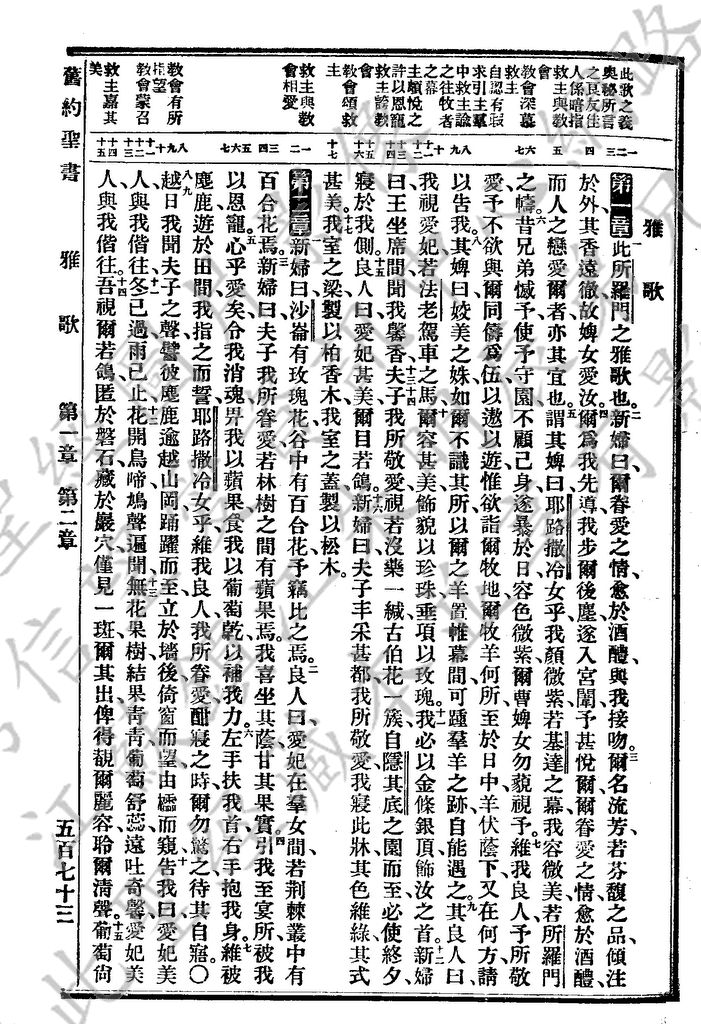 雅歌
第一章 一此所羅門之雅歌也二新婦曰爾眷愛之情愈於酒醴與我接吻三爾名流芳若芬馥之品傾注
於外其香遠徹故婢女愛汝四爾爲我先導我步爾後塵遂入宮闈予甚悅爾爾眷愛之情愈於酒醴
而人之戀愛爾者亦其宜也五謂其婢曰耶路撒冷女乎我顏微紫若基達之幕我容微美若所羅門
之幬六昔兄弟憾予使予守園不顧己身遂暴於日容色微紫爾曹婢女勿藐視予七維我良人予所敬
愛予不欲與爾同儔爲伍以遨以遊惟欲詣爾牧地爾牧羊何所至於日中羊伏蔭下又在何方請
以告我八其婢曰姣美之姝如爾不識其所以爾之羊置帷幕間可踵羣羊之跡自能遇之九其良人曰
我視愛妃若法老駕車之馬十爾容甚美飾貌以珍珠垂項以玫瑰十一我必以金條銀頂飾汝之首十二新婦
曰王坐席間聞我馨香十三夫子我所敬愛視若沒藥一緘十四古伯花一簇自隱其底之園而至必使終夕
寢於我側十五良人曰愛妃甚美爾目若鴿十六新婦曰夫子丰采甚都我所敬愛我寢此牀其色維綠其式
甚美十七我室之梁製以柏香木我室之蓋製以松木
第二章 一新婦曰沙崙有玫瑰花谷中有百合花予竊比之焉二良人曰愛妃在羣女間若荆棘叢中有
百合花焉三新婦曰夫子我所眷愛若林樹之間有蘋果焉我喜坐其蔭甘其果實四引我至宴所被我
以恩寵五心乎愛矣令我消魂畀我以蘋果食我以葡萄乾以補我力六左手扶我首右手抱我身七維被
麀鹿遊於田間我指之而誓耶路撒冷女乎維我良人我所眷愛酣寢之時爾勿驚之待其自寤〇八九
越日我聞夫子之聲譬彼麀鹿逾越山岡踊躍而至立於墻後倚窗而望由櫺而窺十告我曰愛妃美
人與我偕往十一冬已過雨已止十二花開鳥啼鳩聲遍聞十三無花果樹結果靑靑葡萄舒蕊遠吐奇馨愛妃美
人與我偕往十四吾視爾若鴿匿於磐石藏於巖穴僅見一班爾其出俾得覩爾麗容聆爾清聲十五葡萄尙
此歌之義
奥秘所言
之良友佳
人係暗指
救主與敎
會
敎會深慕
救主
自認有瑕
求引主羣
中救主諭
之往牧者
之幕
主顯悅之
許以恩寵
救主誇敎
會
敎會頌救
主
救主與敎
會相愛
敎會有所
指望
敎會蒙召
救主嘉其
美
舊約聖書 雅歌 第一章 第二章 五百七十三